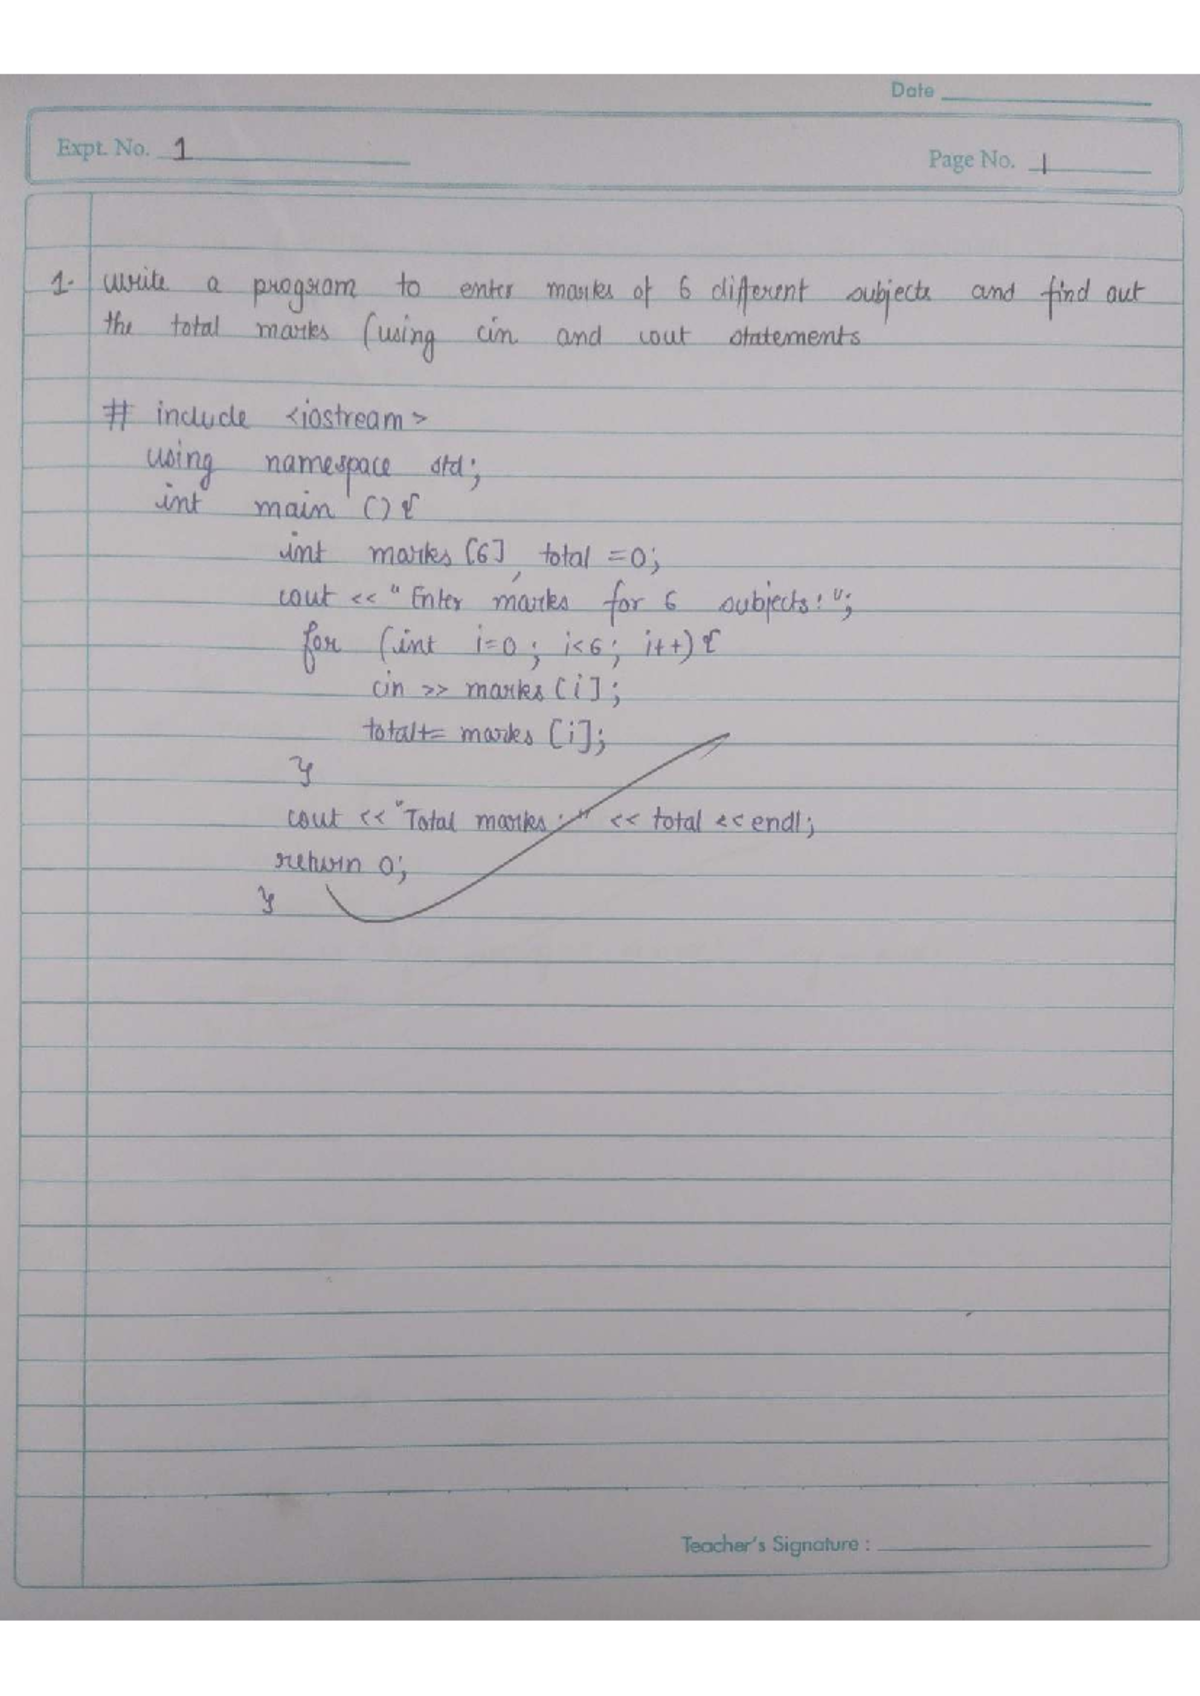 Date
Expt. No. 1
Page No. 1
1. write a program to enter marks of 6 different subjects and find out
the total marks (using cin and cout statements
# include <iostream>
using namespace std;
int main () {
int marks [6], total = 0;
cout << "Enter marks for 6 subjects: ";
for (int i=0; i<6; i++) {
cin >> marks [i];
total+= marks [i];
}
cout << "Total marks: " << total << endl;
return 0;
}
Teacher's Signature :